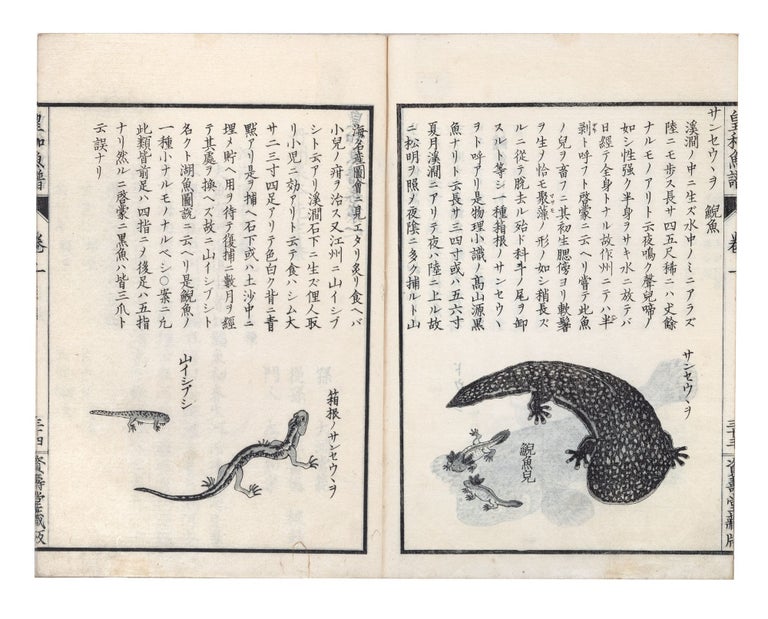 サンセウヽヲ 鯢魚
溪澗ノ中ニ生ズ水中ノミニアラズ
陸ニモ歩ス長サ四五尺稀ニハ丈餘
ナルモノアリト云夜鳴ク聲兒啼ノ
如シ性強ク半身ヲサキ水ニ放テバ
日經テ全身トナル故作州ニテハ半
剥ト呼フト啓蒙ニ云ヘリ嘗テ此魚
ノ兒ヲ畜フニ其初生腮傍ヨリ軟鬚
ヲ生ノ恰モ聚藻ノ形ノ如シ稍長ズ
ルニ從テ脱去ル殆ド科斗ノ尾ヲ卸
スルト等シ一種箱根ノサンセウヽ
ヲト呼アリ是物理小識ノ高山源黒
魚ナリト云長サ三四寸或ハ五六寸
夏月溪澗ニアリテ夜ハ陸ニ上ル故
ニ松明ヲ照メ夜陰ニ多ク捕ルト山
サンセウヽヲ
鯢魚兒
皇和魚譜
卷一
三十三
資壽堂藏版
海名産圖會ニ見エタリ炙リ食ヘバ
小兒ノ疳ヲ治ス又江州ニ山イシブ
シト云アリ溪澗石下ニ生ズ俚人取
リ小兒ニ効アリト云テ食ハシム大
サ二三寸四足アリテ色白ク背ニ青
黙アリ是ヲ捕ヘ石下或ハ土沙中ニ
埋メ貯ヘ用ヲ待テ復捕ニ數月ヲ經
テ其處ヲ換ヘズ故ニ山イシブシト
名クト湖魚圖説ニ云ヘリ是鯢魚ノ
一種小ナルモノナルベシ○案ニ凡
此類皆前足ハ四指ニメ後足ハ五指
ナリ然ルニ啓蒙ニ黒魚ハ皆三爪ト
云誤ナリ
箱根ノサンセウヽヲ
山イシブシ
皇和魚譜
卷一
三十四
資壽堂藏版